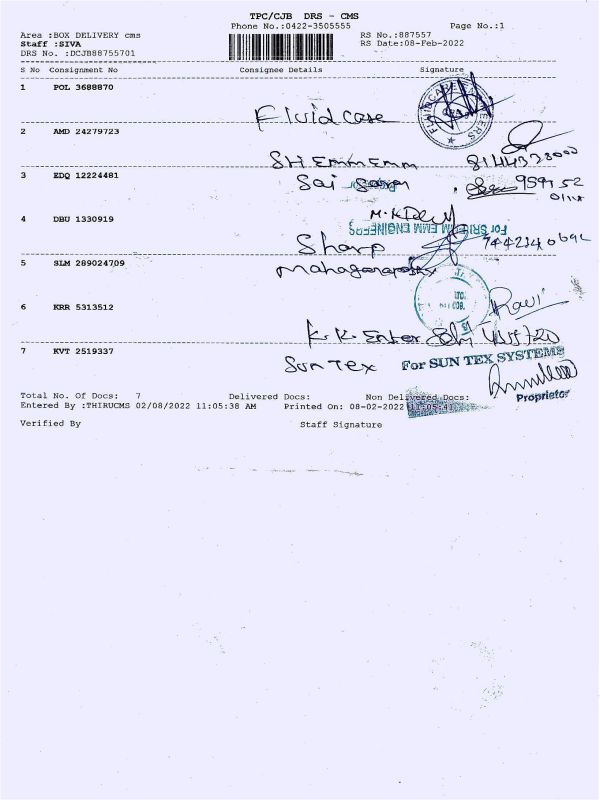 TPC/CJB DRS - CMS
Phone No.:0422-3505555
Page No.:1
Area :BOX DELIVERY cms
RS No.:887557
Staff :SIVA
RS Date:08-Feb-2022
DRS No. :DCJB88755701
S No Consignment No Consignee Details Signature
1 POL 3688870
Fluidcase
2 AMD 24279723
SH Emm Emm
3 EDQ 12224481
Sai
4 DBU 1330919
For SRI EMM ENGINEERS
Sharp
5 SLM 289024709
6 KRR 5313512
Ravi
K.K. Enter
7 KVT 2519337
Sun Tex
For SUN TEX SYSTEMS
Proprietor
Total No. Of Docs: 7 Delivered Docs: Non Delivered Docs:
Entered By :THIRUCMS 02/08/2022 11:05:38 AM Printed On: 08-02-2022 11:05:41
Verified By Staff Signature